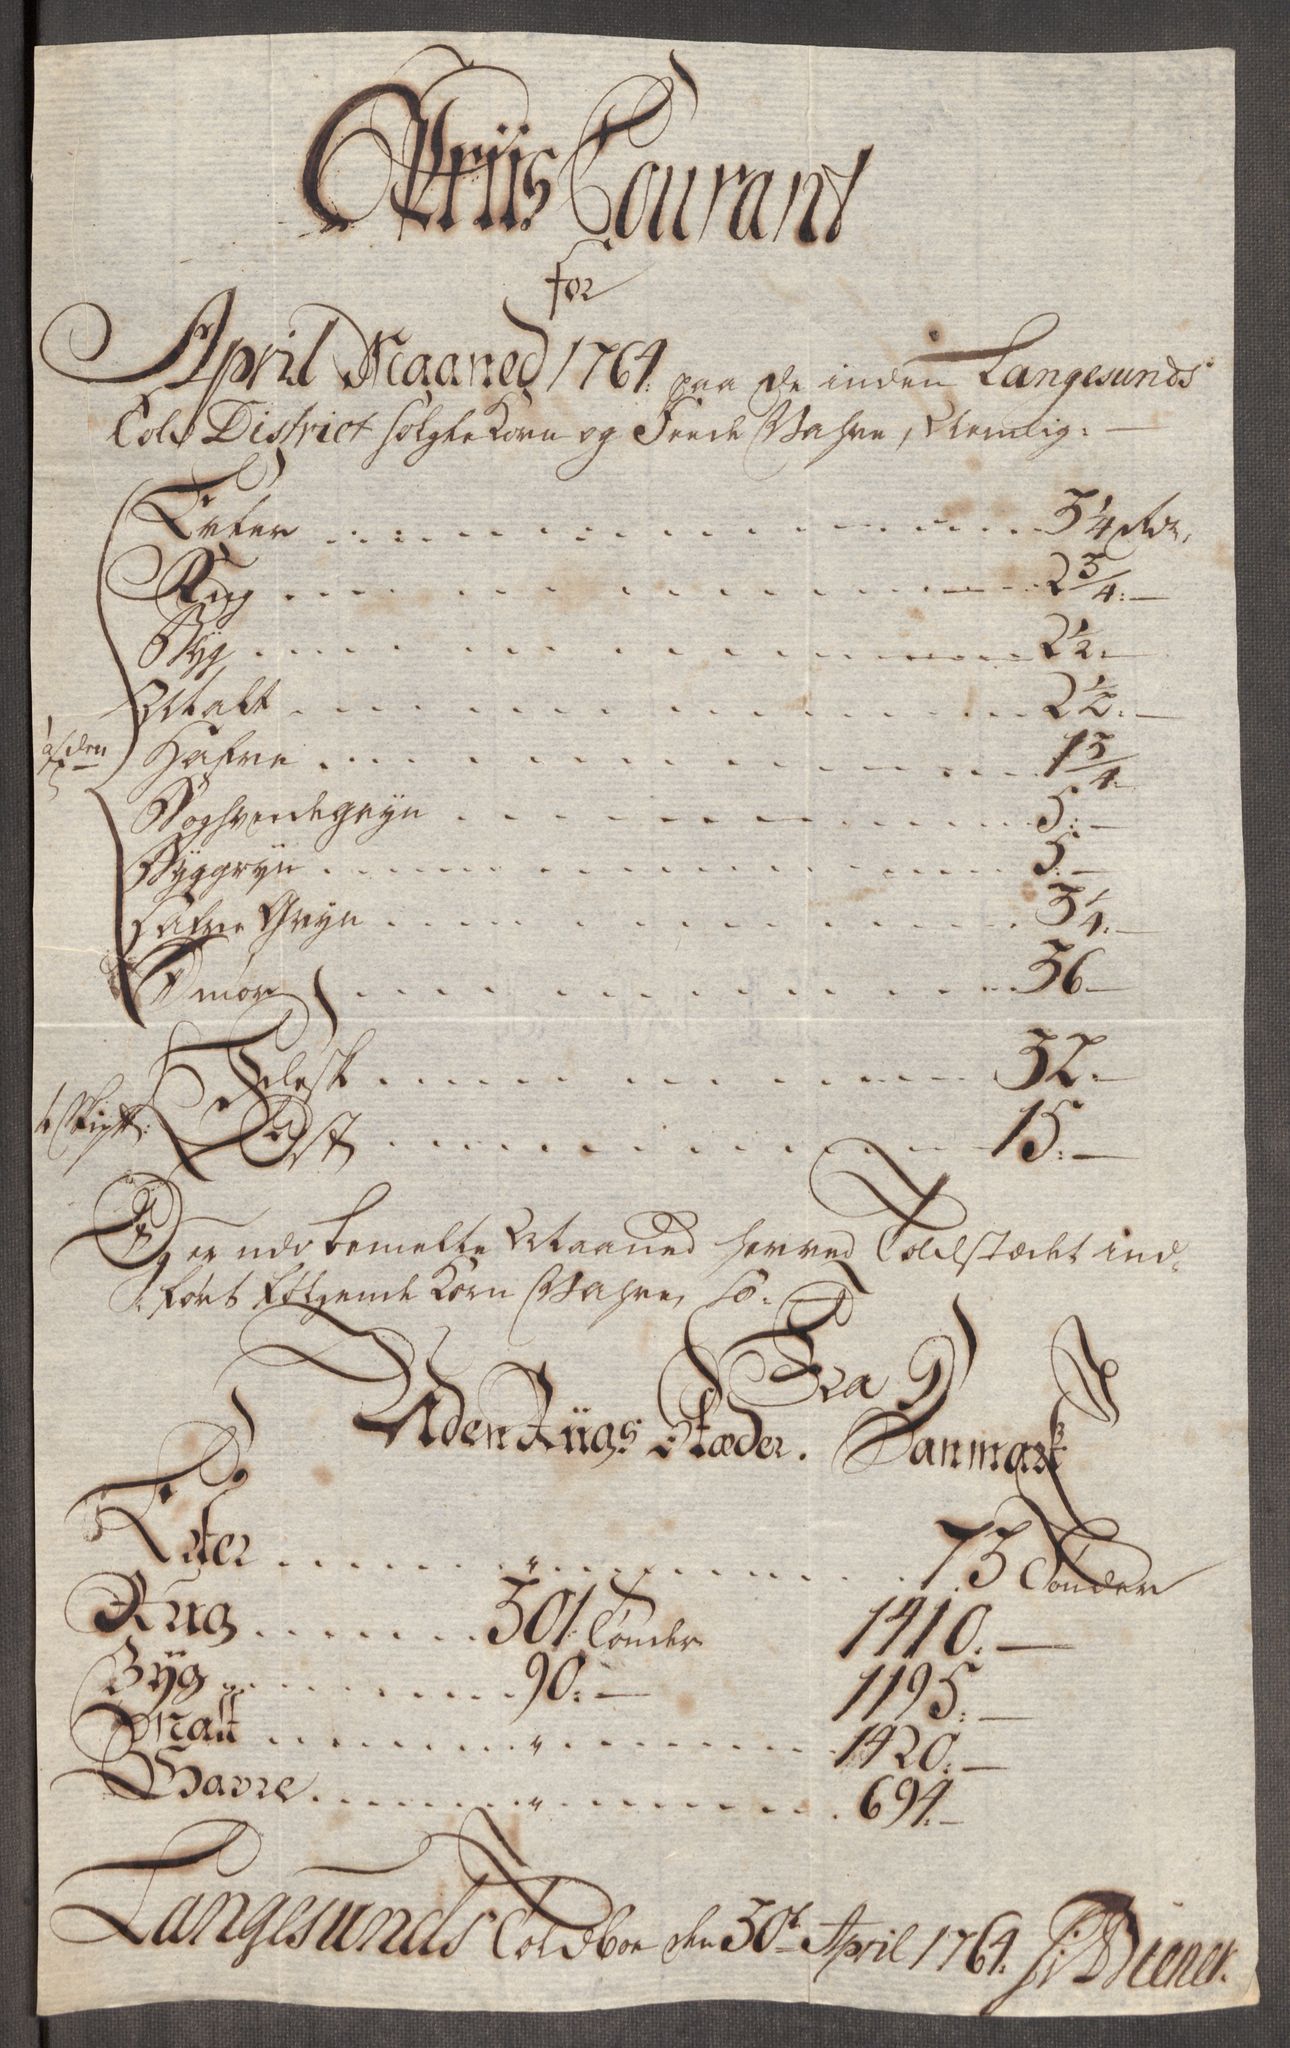 Priis Courant
for
April Maaned 1764. paa de inden Langesunds
Told District solgte Korn og Feede Wahre, Nemlig:
Erter 3 1/4 Rdr.
Rug 2 3/4:
Byg 2 1/2:
Malt 2 1/2:
Hafre 1 3/4:
Boghvedegryn 5:
Byggryn 5:
Hafre Gryn 3 1/4:
Smør 36
Flesk 32:
Ost 15:
Og er udi bemelte Maaned her ved Toldstædet ind-
ført følgende Korn Wahre, so:
Fra
Uden Riigs Stæder. Danmark
Erter " 73 Tønder
Rug 301 Tønder 1410:
Byg 90: 1195:
Malt " 1420:
Havre " 694:
Langesunds Toldboe den 30t April 1764.